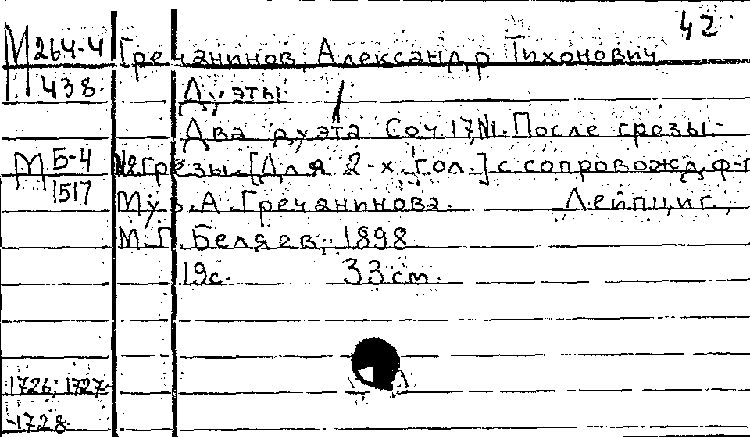 42
М 264-4 Гречанинов, Александр Тихонович
438 Дуэты
Два дуэта Соч. 17, №1. После грозы.-
М Б-4 №2 Грезы. [Для 2-х гол.] с сопровожд. ф-п
1517 Муз. А. Гречанинова. Лейпциг,
М. П. Беляев, 1898
19с. 33 cm.
1726; 1727
-1728